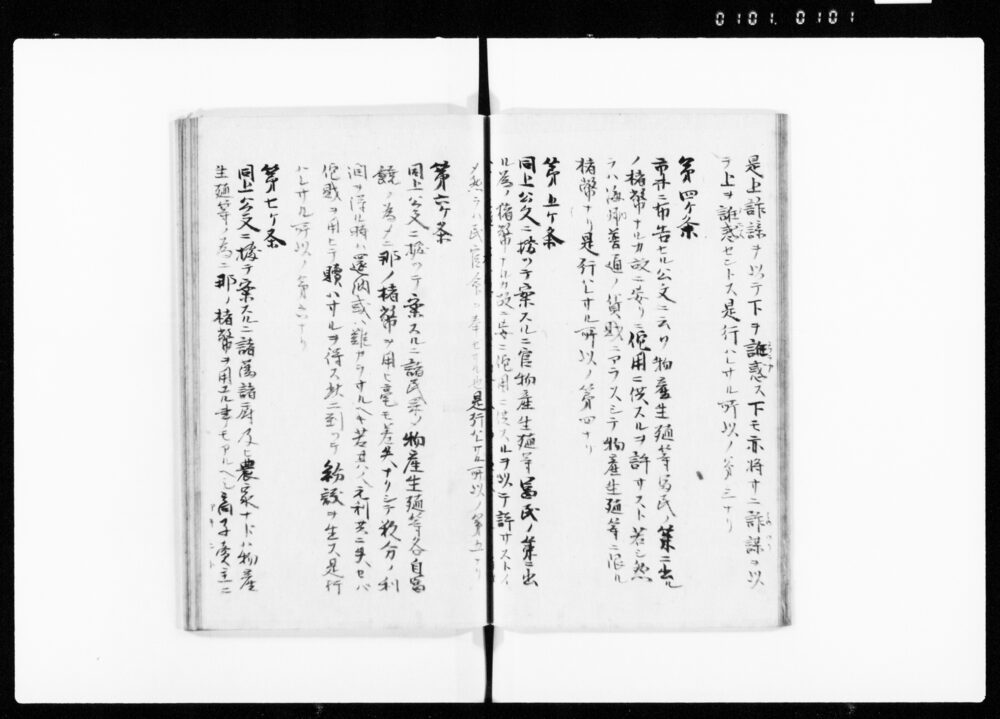 0101.0101
是上詐謀ヲ以テ下ヲ誑惑ス下モ亦将サニ詐謀ヲ以
テ上ヲ誑惑セントス是行ハレサル所以ノ第三ナリ
第四ケ条
市井ニ布告セル公文ニ云リ物産生殖等富民ノ策ニ出ル
ノ楮幣ナルカ故ニ妄リニ他用ニ供スルヲ許サスト若シ然
ラハ海内普通ノ貨賄ニアラスシテ物産生殖等ニ限ル
楮幣ナリ是行ハレサル所以ノ第四ナリ
第五ケ条
同上公文ニ據ッテ案スルニ官物産生殖等富民ノ策ニ出
ル為ノ楮幣ナルカ故ニ妄ニ他用ニ供スルヲ以テ許サスト
ノ是行ハレサル所以ノ第五ナリ
第六ケ条
同上公文ニ據ッテ案スルニ諸民ノ物産生殖等各自富
饒ノ為メニ那ノ楮幣ヲ用ヒ毫モ差失ナクシテ数分ノ利
潤ヲ得ル時ハ還納或ハ難カラサルヘキ若其ノ元利共ニ失セハ
他賄ヲ用ヒテ贖ハサルヲ得ス玆ニ到ッテ紛議ヲ生ス是行
ハレサル所以ノ第六ナリ
第七ケ条
同上公文ニ據テ案スルニ諸藩諸府及ヒ農家ナトハ物産
生殖等ノ為ニ那ノ楮幣ヲ用ユル事モアルヘシ商子賣主ニ